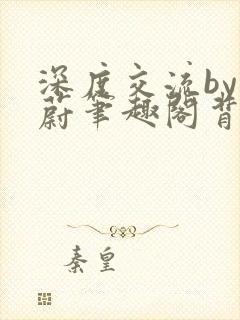 深度交流by
蔚笔趣阁背
秦皇